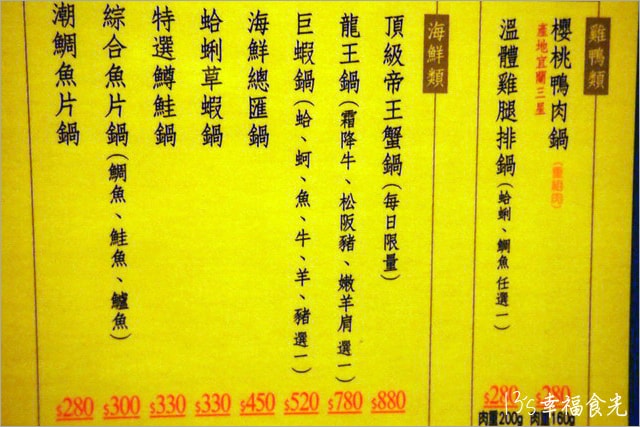 雞鴨類
櫻桃鴨肉鍋
產地宜蘭三星
$280
肉重160g
溫體雞腿排鍋(蛤蜊、鯛魚 任選一)
$280
肉重200g
海鮮類
頂級帝王蟹鍋(每日限量)
$880
龍王鍋(霜降牛、松阪豬、嫩羊肩 選一)
$780
巨蝦鍋(蛤、蚵、魚、牛、羊、豬 選一)
$520
海鮮總匯鍋
$450
蛤蜊草蝦鍋
$330
特選鱒鮭鍋
$330
綜合魚片鍋(鯛魚、鮭魚、鱸魚)
$300
潮鯛魚片鍋
$280
13's幸福食光